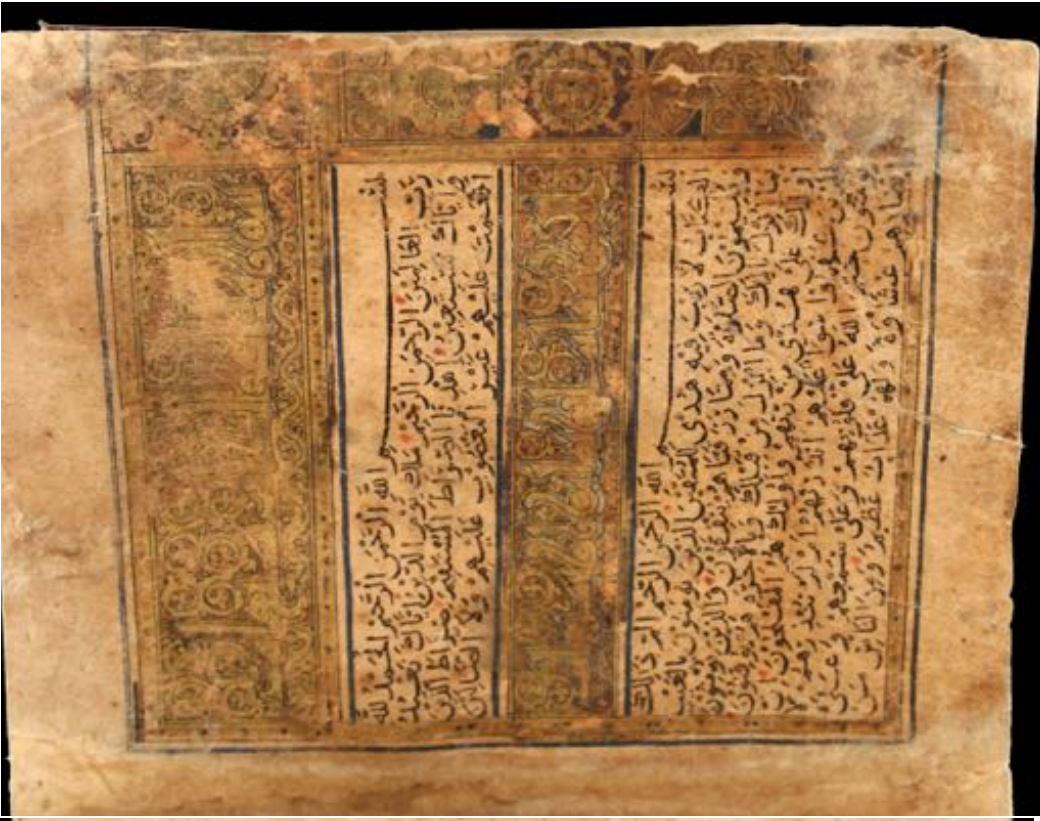 بسم الله الرحمن الرحيم الحمد لله
رب العالمين الرحمن الرحيم ملك يوم الدين اياك نعبد
واياك نستعين اهدنا الصراط المستقيم صراط الذين
انعمت عليهم غير المغضوب عليهم ولا الضالين
بسم الله الرحمن الرحيم الم ذلك
الكتب لا ريب فيه هدى للمتقين الذين يومنون بالغيب
ويقيمون الصلوة ومما رزقنهم ينفقون والذين يومنون
بما انزل اليك وما انزل من قبلك وبالاخرة هم يوقنون
اولئك على هدى من ربهم واولئك هم المفلحون ان
الذين كفروا سوا عليهم اانذرتهم ام لم تنذرهم لا
يومنون ختم الله على قلوبهم وعلى سمعهم وعلى
ابصارهم غشاوة ولهم عذاب عظيم ومن الناس من